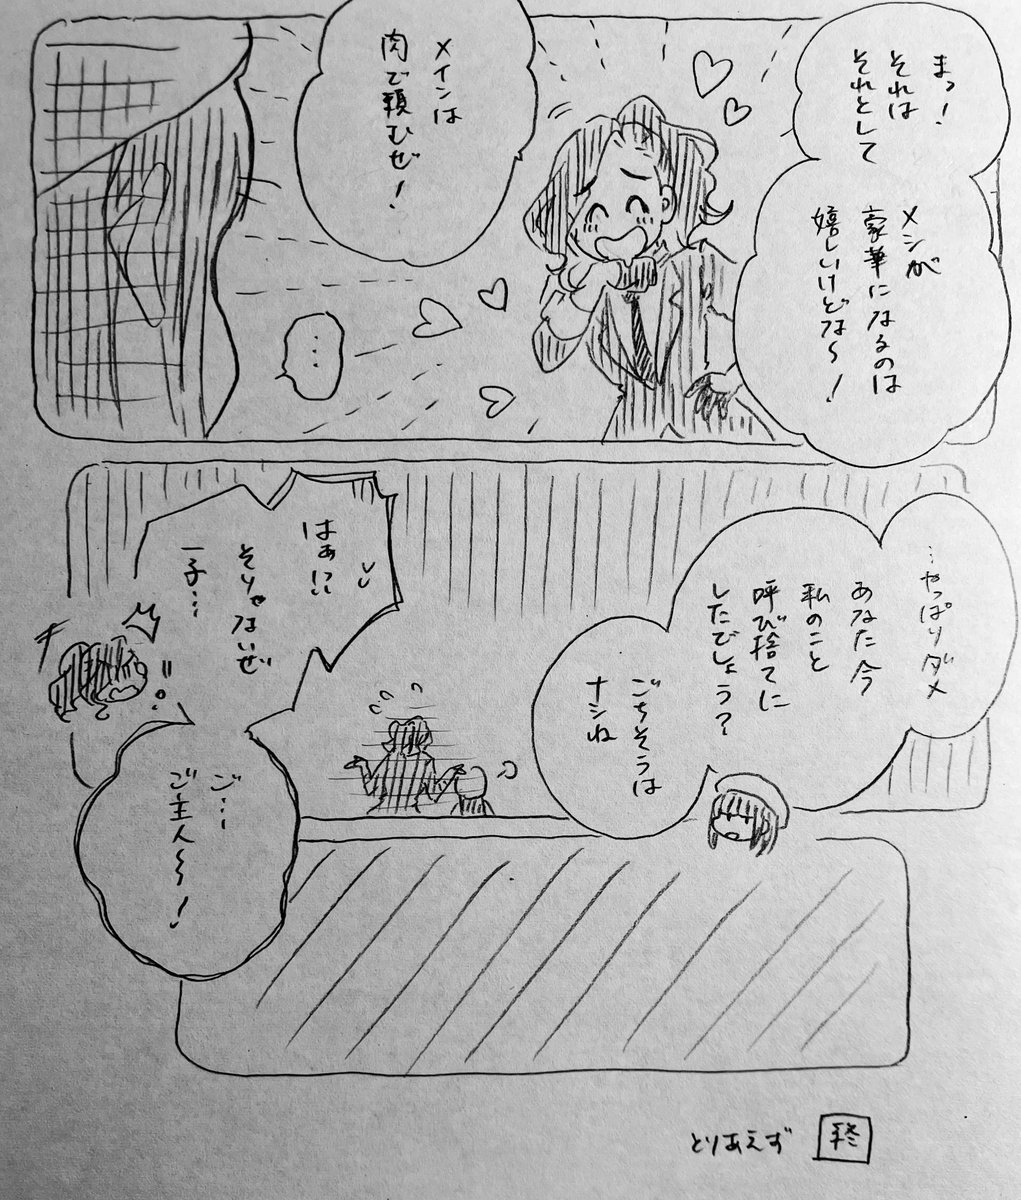 まっ!
それは
それとして
メシが
豪華になるのは
嬉しいけどな〜!
メインは
肉で頼むぜ!
…
…やっぱりダメ
あなた今
私のこと
呼び捨てに
したでしょう?
ごちそうは
ナシね
はぁ!?
そりゃないぜ
一子…
ご…
ご主人〜!
とりあえず 終